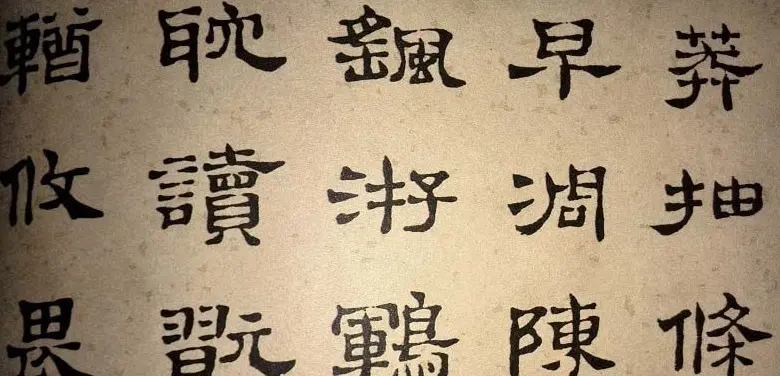 莽抽條
早凋陳
颻游鶤
耽讀翫
輶攸畏